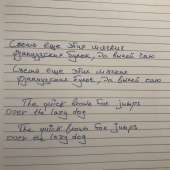 Съешь еще этих мягких
французских булок, да выпей чаю
Съешь еще этих мягких
французских булок, да выпей чаю
The quick brown fox jumps
over the lazy dog
The quick brown fox jumps
over the lazy dog